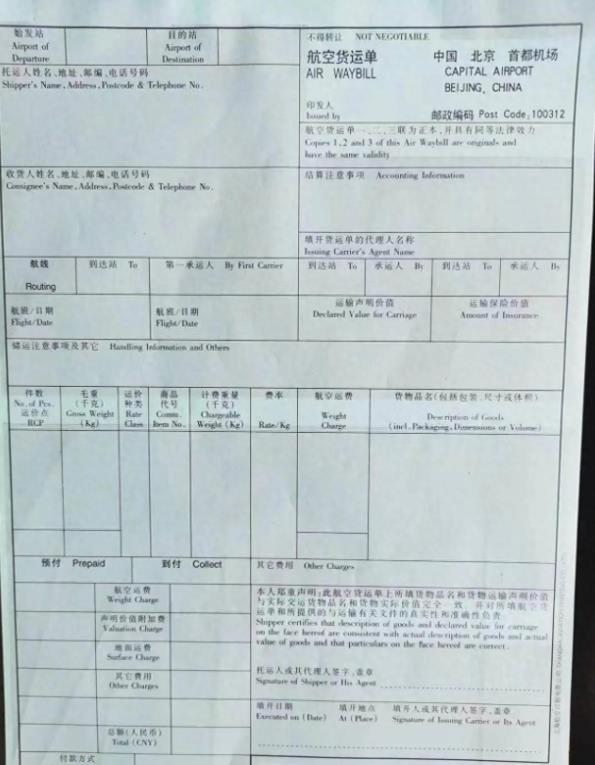 始发站
Airport of
Departure
目的站
Airport of
Destination
不得转让 NOT NEGOTIABLE
航空货运单
AIR WAYBILL
中国 北京 首都机场
CAPITAL AIRPORT
BEIJING, CHINA
印发人
Issued by
邮政编码 Post Code:100312
托运人姓名、地址、邮编、电话号码
Shipper's Name,Address,Postcode & Telephone No.
航空货运单一、二、三联为正本,并具有同等法律效力
Copies 1,2 and 3 of this Air Waybill are originals and
have the same validity
收货人姓名、地址、邮编、电话号码
Consignee's Name,Address,Postcode & Telephone No.
结算注意事项 Accounting Information
填开货运单的代理人名称
Issuing Carrier's Agent Name
航线
Routing
到达站 To
第一承运人 By First Carrier
到达站 To
承运人 By
到达站 To
承运人 By
航班/日期
Flight/Date
航班/日期
Flight/Date
运输声明价值
Declared Value for Carriage
运输保险价值
Amount of Insurance
储运注意事项及其它 Handling Information and Others
件数
No.of Pcs.
运价点
RCP
毛重
(千克)
Gross Weight
(Kg)
运价
种类
Rate
Class
商品
代号
Comm.
Item No.
计费重量
(千克)
Chargeable
Weight (Kg)
费率
Rate/Kg
航空运费
Weight
Charge
货物品名(包括包装、尺寸或体积)
Description of Goods
(incl.Packaging,Dimensions or Volume)
预付 Prepaid
到付 Collect
其它费用 Other Charges
航空运费
Weight Charge
声明价值附加费
Valuation Charge
地面运费
Surface Charge
其它费用
Other Charges
总额(人民币)
Total (CNY)
付款方式
本人郑重声明:此航空货运单上所填货物品名和货物运输声明价值
与实际交运货物品名和货物实际价值完全一致。并对所填航空货
运单和所提供的与运输有关文件的真实性和准确性负责。
Shipper certifies that description of goods and declared value for carriage
on the face hereof are consistent with actual description of goods and actual
value of goods and that particulars on the face hereof are correct.
托运人或其代理人签字、盖章
Signature of Shipper or His Agent
填开日期
Executed on (Date)
填开地点
At (Place)
填开人或其代理人签字、盖章
Signature of Issuing Carrier or Its Agent